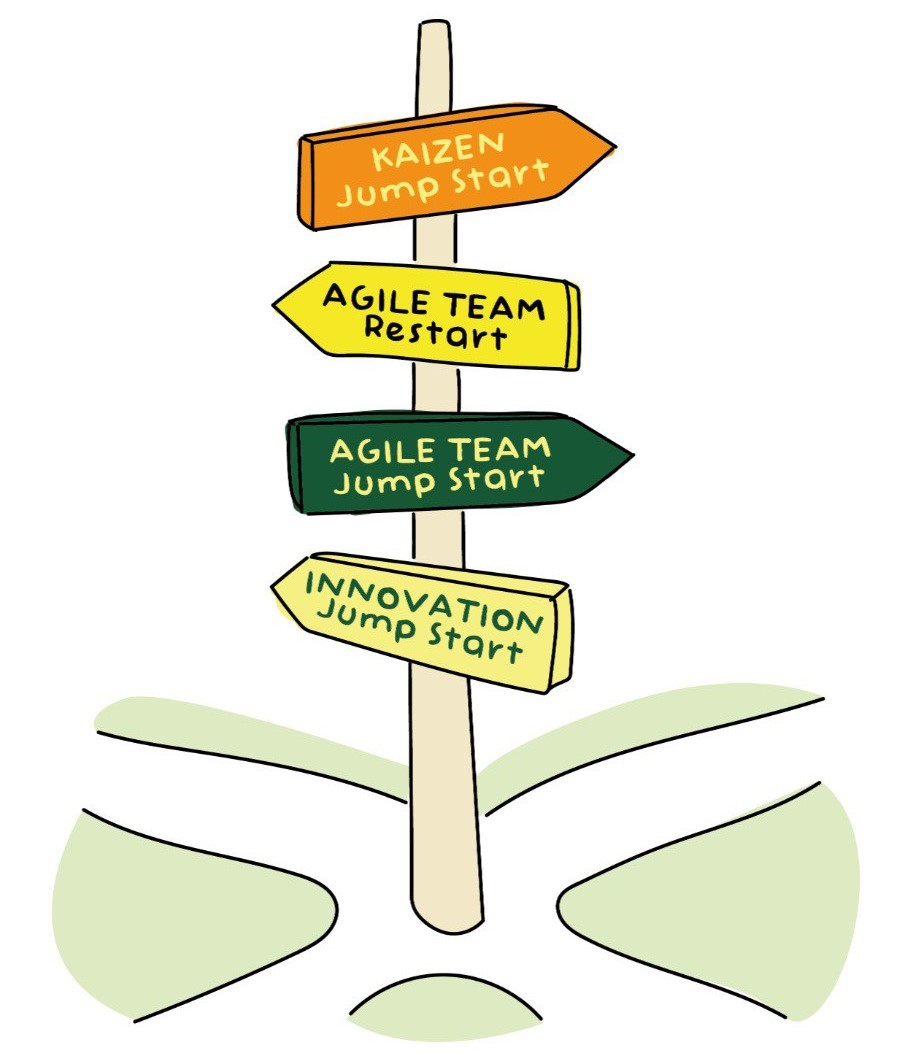 KAIZEN
Jump Start
AGILE TEAM
Restart
AGILE TEAM
Jump Start
INNOVATION
Jump Start